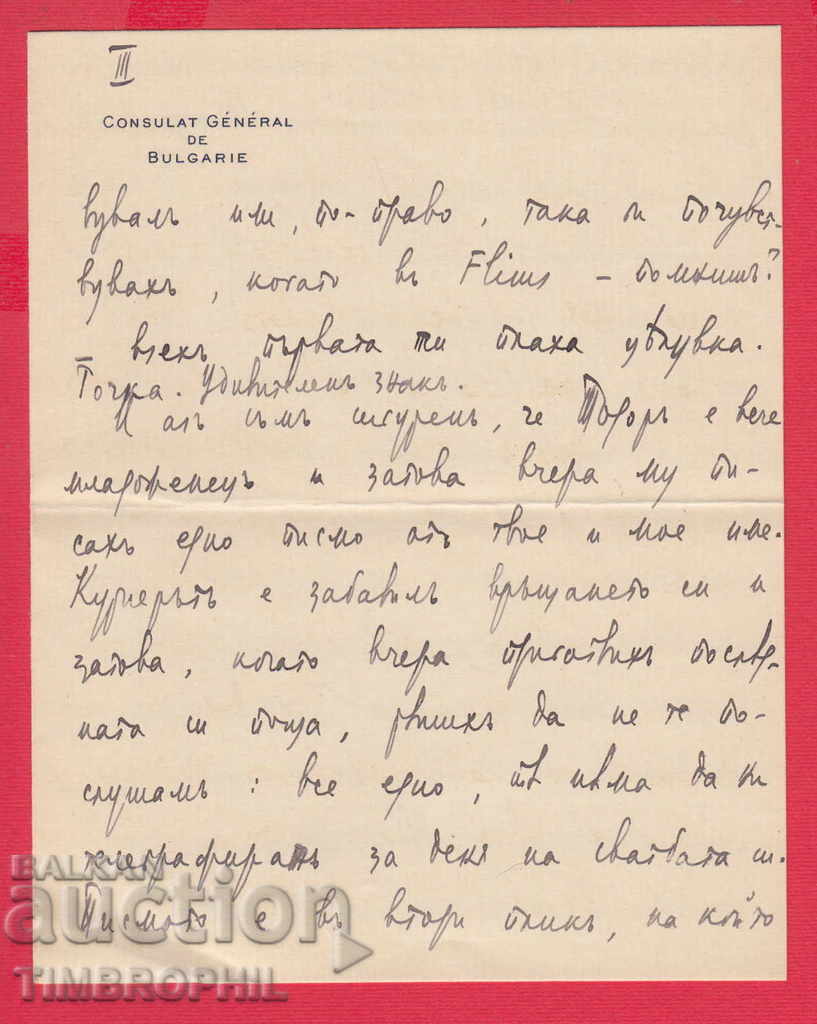 III
CONSULAT GÉNÉRAL
DE
BULGARIE
вувалъ или, по-право, така ли почувст-
вувахъ, когато въ Flims – помнишъ?
– взехъ първата ти плаха увлувка.
Точка. Удивителенъ знакъ.
И азъ съмъ сигуренъ, че Тодоръ е вече
младоженецъ и затова вчера му пи-
сахъ едно писмо отъ твое и мое име.
Куриерътъ е забавилъ връщането си и
затова, когато вчера приготвихъ послѣд-
ната си поща, рѣшихъ да не те по-
слушамъ: все едно, тѣ нѣма да ни
телеграфиратъ за деня на сватбата си.
Писмото е въ втори пликъ, на който
BALKAN
auction
TIMBROPHIL